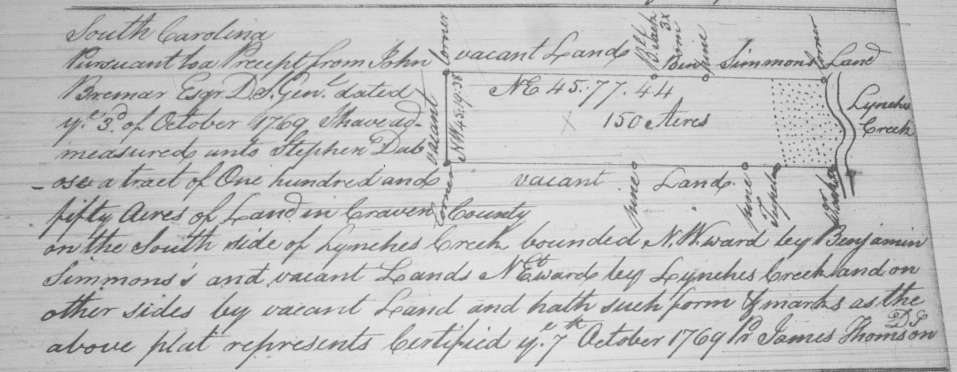 South Carolina
Pursuant to a Precept from John
Bremar Esqr. D. S. Genl. dated
ye. 3d. of October 1769 I have ad-
measured unto Stephen Dub
ose a tract of One hundred and
fifty Acres of Land in Craven County
on the South side of Lynches Creek bounded N.W.ward by Benjamin
Simmons's and vacant Lands N Eward by Lynches Creek and on
other sides by vacant Land and hath such form & marks as the
above plat represents Certified ye. 7th October 1769 Pr James Thomson
D S
Corner
vacant Land
3x
pine
Ben Simmons Land
Corner
NE 45. 77. 44
150 Acres
vacant
N.W 45.19.38
Lynches
Creek
Corner
vacant Land
pine
pine